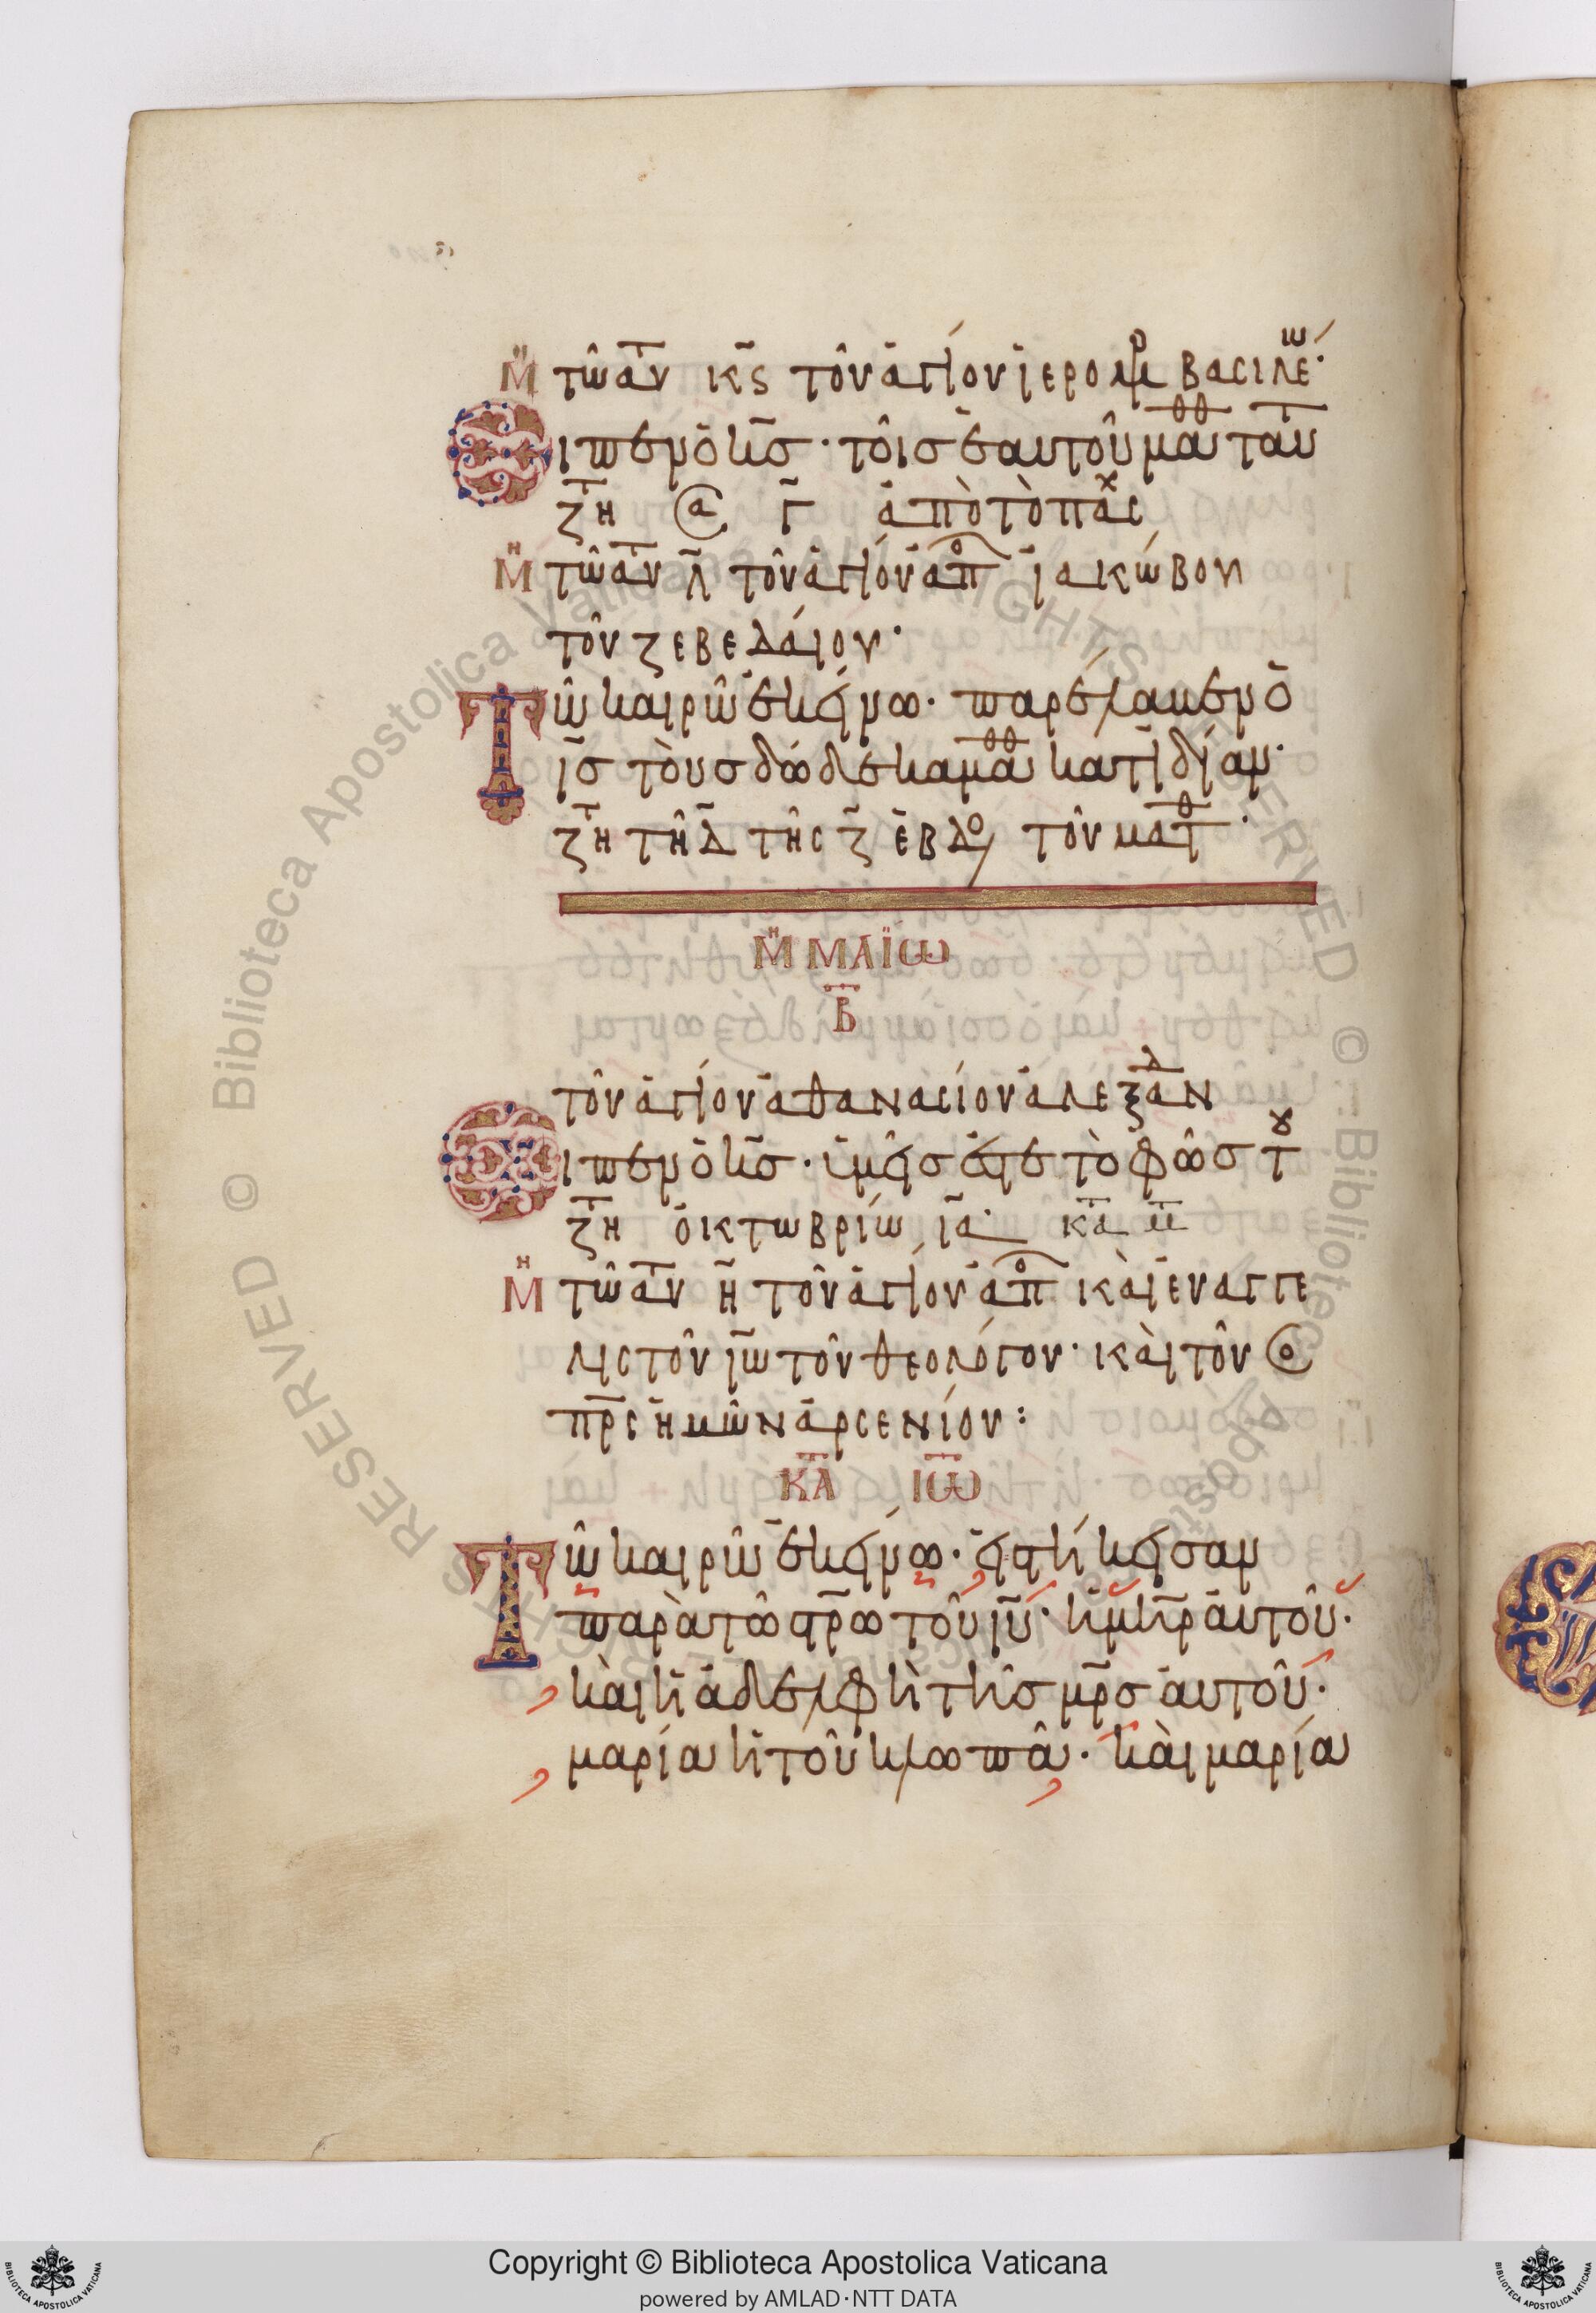 Μη τῶ αυτ κς τοῦ ἁγίου ἱερομρ βασιλέω·
Ειπεν ὁ κς· τοῖς ἑαυτοῦ μαθθ ταυτ
ζτη α γ ἀπὸ τὸ πάσχ
Μη τῶ αυτ λ τοῦ ἁγίου ἀποστ ἰακώβου
τοῦ ζεβεδαίου·
Τῶ καιρῶ ἐκείνω· παρέλαβεν ὁ
ις τοὺς δώδεκα μαθθ κατιδίαν·
ζτη τῆ δ τῆς ζ ἑβδο τοῦ ματθ·
Μη ΜΑΪΩ
Β
τοῦ ἁγίου ἀθανασίου ἀλεξανδ
Ειπεν ὁ κς· ὑμεῖς ἐστε τὸ φῶς του
ζτη ὀκτωβρίω ια· κτα ματ
Μη τῶ αυτ η τοῦ ἁγίου ἀπο καὶ εὐαγγε
λιστοῦ ιω τοῦ θεολόγου· καὶ τοῦ ὁσ
πρς ἡμῶν ἀρσενίου:
ΚΤΑ ΙΩ
Τῶ καιρῶ ἐκείνω· εἱστήκεισαν
παρὰ τῶ στρω τοῦ ιυ· ἡ μηρ αὐτοῦ·
καὶ ἡ ἀδελφὴ τῆς μρς αὐτοῦ·
μαρία ἡ τοῦ κλωπᾶ· καὶ μαρία
Copyright © Biblioteca Apostolica Vaticana
powered by AMLAD·NTT DATA